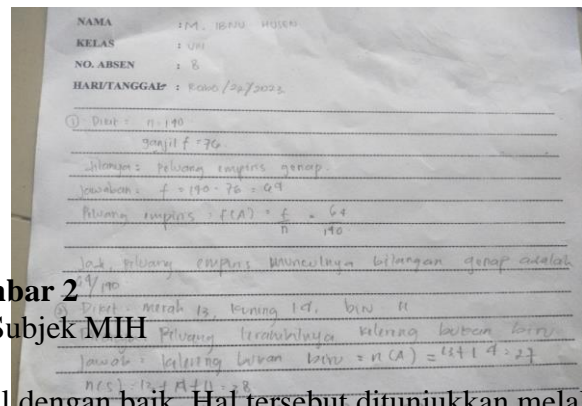 NAMA : M. IBNU HUSEN
KELAS : VIII
NO. ABSEN : 8
HARI/TANGGAL : Rabu /22/2023
① Diket : n = 140
ganjil f = 76
Ditanya : Peluang empiris genap
Jawaban : f = 140 - 76 = 64
Peluang empiris : f(A) = f/n = 64/140
Jadi, Peluang empiris munculnya bilangan genap adalah
64/140
② Diket : merah 13, kuning 14, biru 11
Peluang terambilnya kelereng bukan biru
Jawab : kelereng bukan biru = n(A) = 13 + 14 = 27
n(s) : 13 + 14 + 11 = 38
mbar 2
Subjek MIH
l dengan baik. Hal tersebut ditunjukkan mela